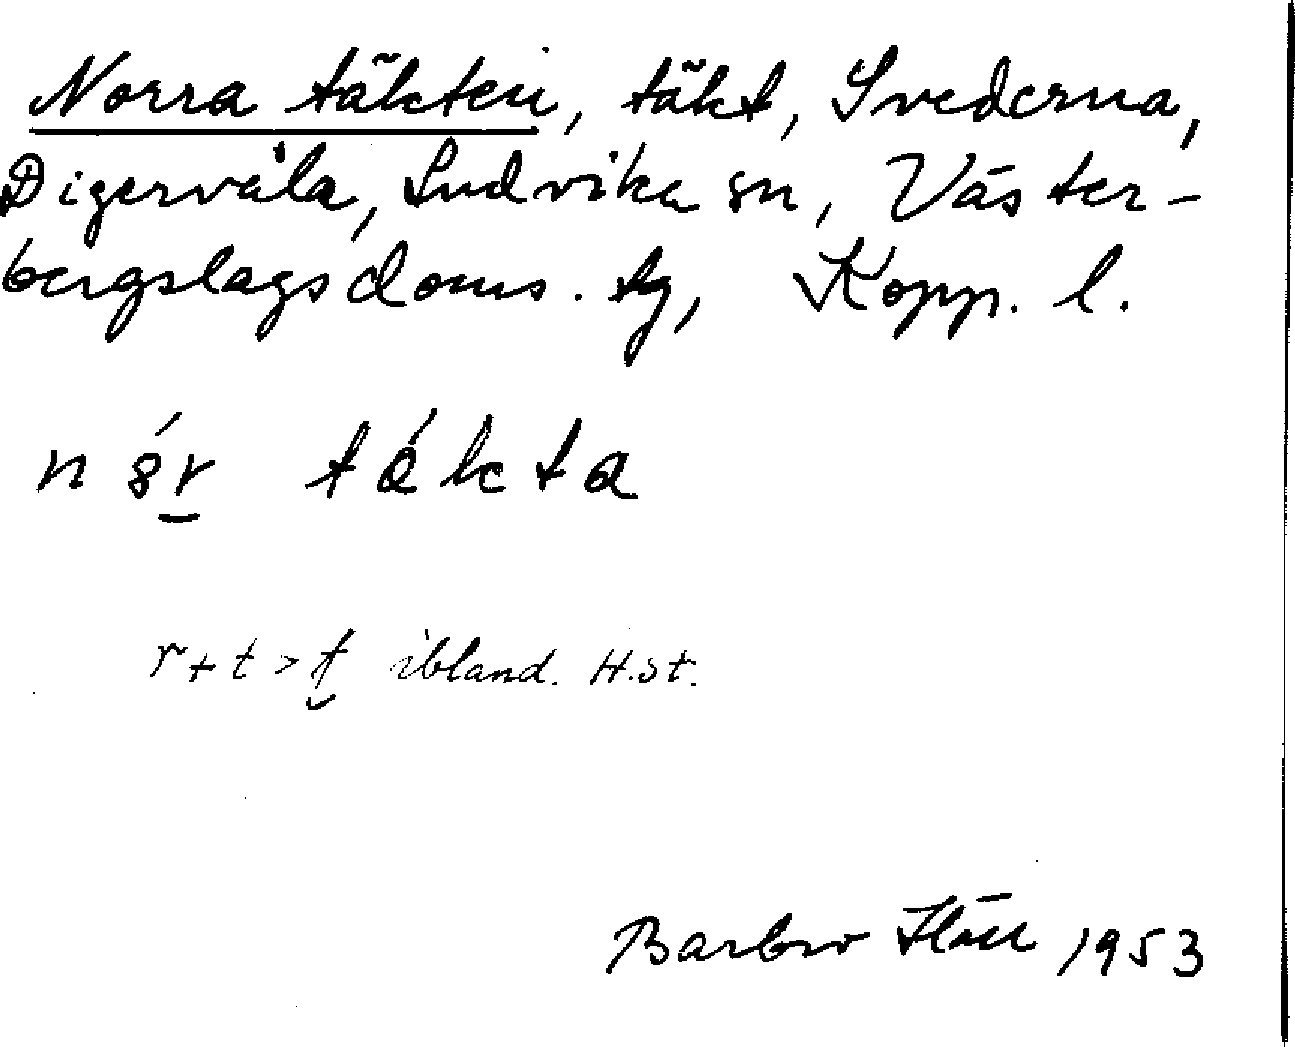 Norra täkten, täkt, Svederna,
Digervåla, Ludvika sn, Väster-
bergslagsdoms. tg, Kopp. l.
tákta
r+t > ibland. H.st.
Barbro 1953